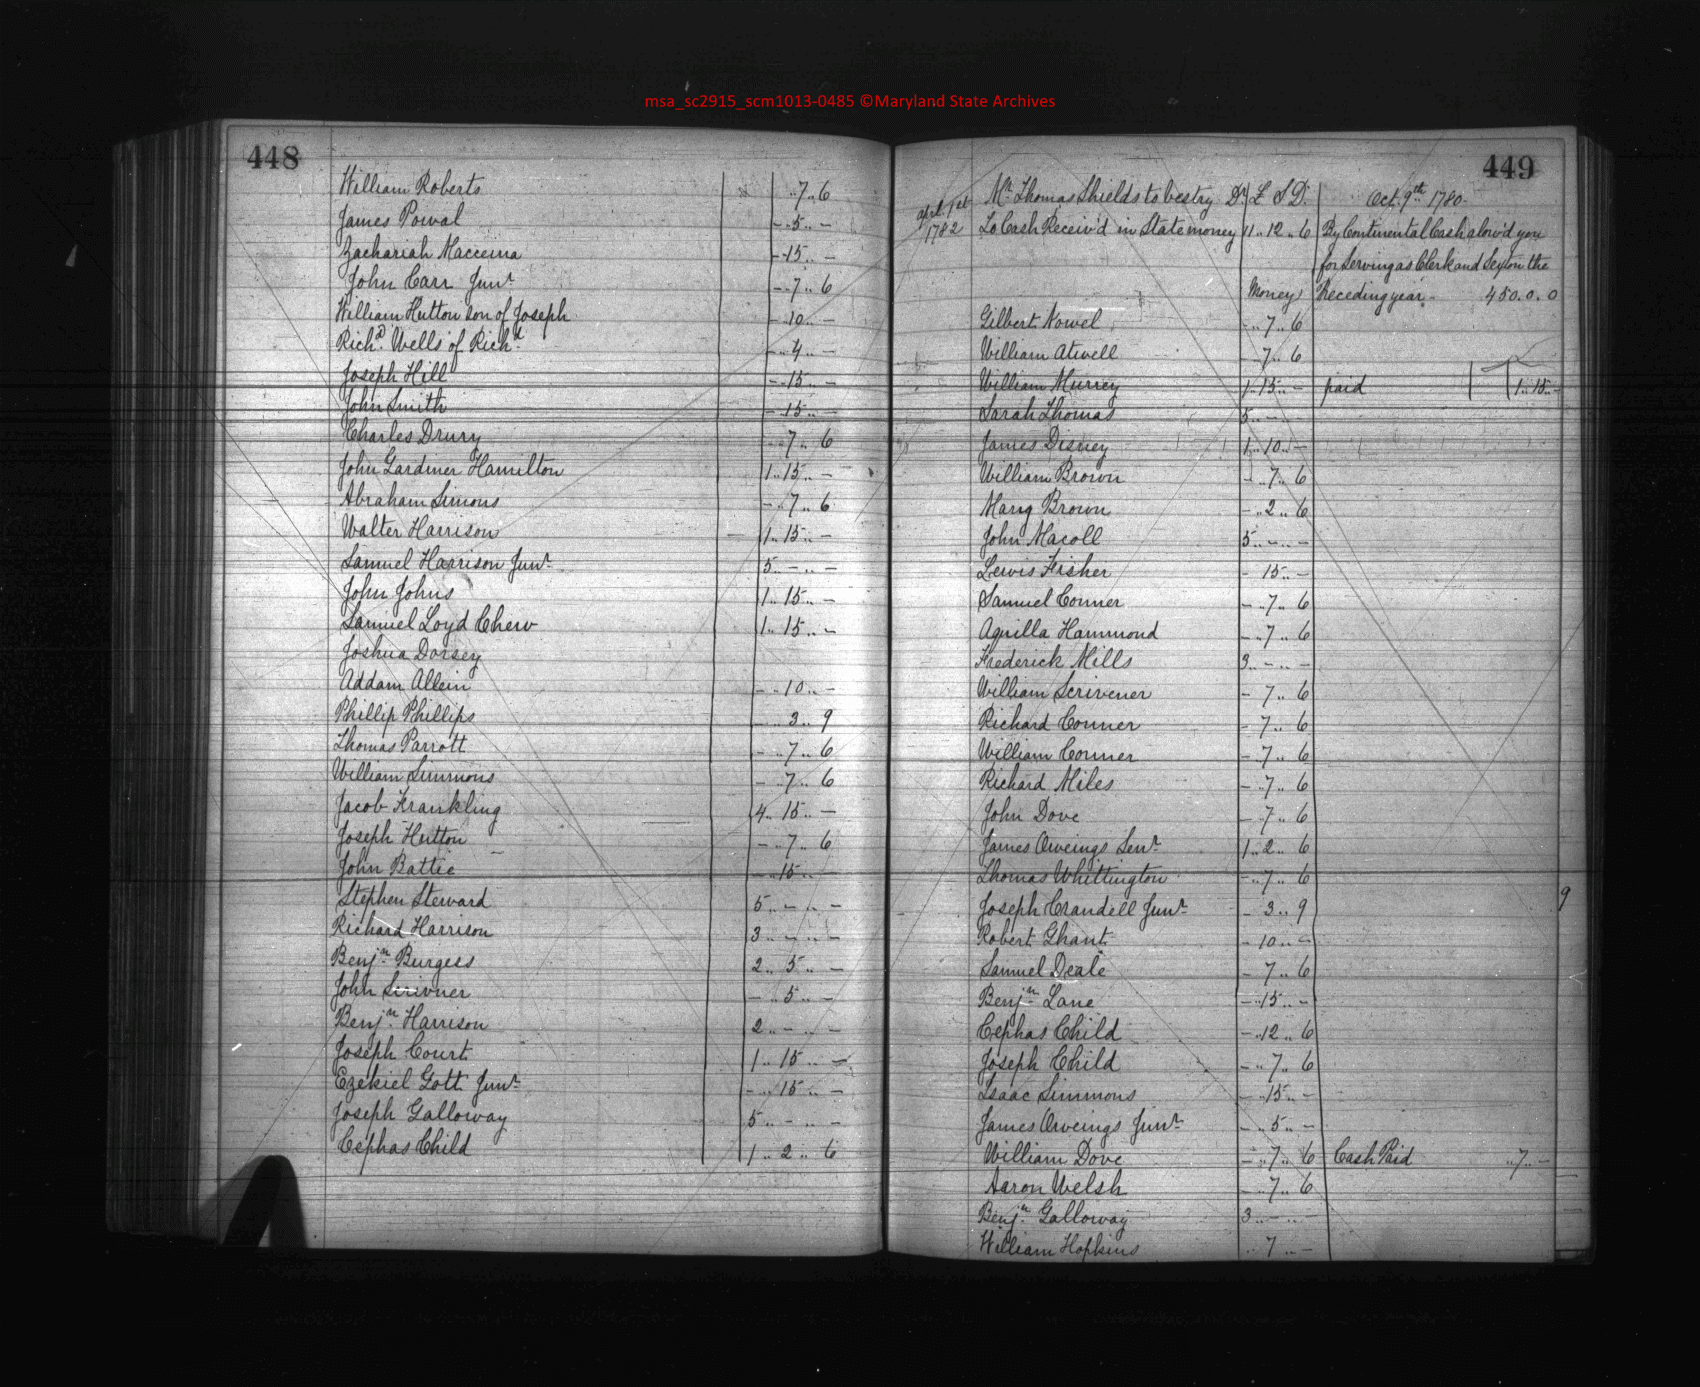 msa_sc2915_scm1013-0485 ©Maryland State Archives
448
William Roberts ..7..6
James Powal -..5..-
Zachariah Macceina -..15..-
John Carr Junr -..7..6
William Hutton son of Joseph -..10..-
Richd. Wells of Richd. -..4..-
Joseph Hill -..15..-
John Smith -..15..-
Charles Drury -..7..6
John Gardiner Hamilton 1..15..-
Abraham Simons -..7..6
Walter Harrison 1..15..-
Samuel Harrison Junr 5..-..-
John Johns 1..15..-
Samuel Loyd Chew 1..15..-
Joshua Dorsey
Addam Allein -..10..-
Phillip Phillips -..3..9
Thomas Parrott -..7..6
William Simmons -..7..6
Jacob Frankling 4..15..-
Joseph Hutton -..7..6
John Battie -..15..-
Stephen Steward 5..-..-
Richard Harrison 3..-..-
Benjn. Burgess 2..5..-
John Scrivner -..5..-
Benjn. Harrison 2..-..-
Joseph Court 1..15..-
Ezekiel Gott Junr -..15..-
Joseph Galloway 5..-..-
Cephas Child 1..2..6
449
Mr. Thomas Shields to vestry Dr. £ S D. Oct. 9th 1780-
Aprl. 1st
1782 To Cash Receiv'd in State money 11..12..6 By Continental Cash alow'd you
for Serving as Clerk and Sexton the
Money Preceding year- 450.0.0
Gilbert Nowel -..7..6
William Atwell -..7..6
William Murrey 1..15..- paid 1..15..-
Sarah Thomas 5..-..-
James Disney 1..10..-
William Brown -..7..6
Mary Brown -..2..6
John Macoll 5..-..-
Lewis Fisher -..15..-
Samuel Conner -..7..6
Aquilla Hammond -..7..6
Frederick Mills 3..-..-
William Scrivener -..7..6
Richard Conner -..7..6
William Conner -..7..6
Richard Miles -..7..6
John Dove -..7..6
James Oweings Senr 1..2..6
Thomas Whittington -..7..6
Joseph Crandell Junr -..3..9
Robert Ghant -..10..-
Samuel Deale -..7..6
Benjn. Lane -..15..-
Cephas Child -..12..6
Joseph Child -..7..6
Isaac Simmons -..15..-
James Oweings Junr -..5..-
William Dove -..7..6 Cash Paid ..7..-
Aaron Welsh -..7..6
Benjn. Galloway 3..-..-
William Hopkins ..7..-
9